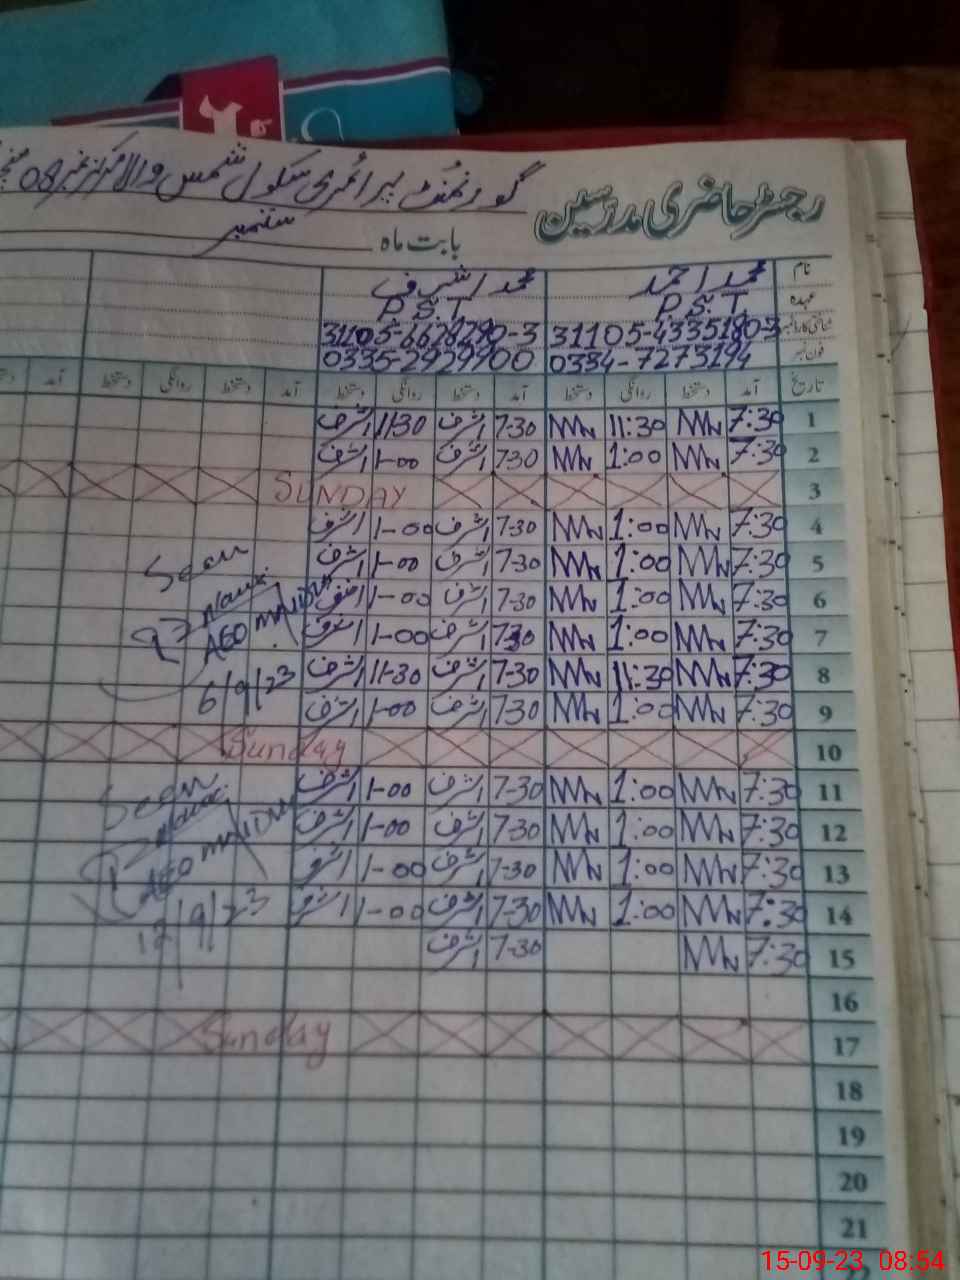 گورنمنٹ پرائمری سکول شمس والا مرکز نمبر 08
رجسٹر حاضری مدرسین
بابت ماہ ستمبر
نام محمد احمد محمد اشرف
عہدہ P.S.T P.S.T
شناختی کارڈ نمبر 31105-4335180-3 31105-6628290-3
فون نمبر 0334-7273194 0335-2929900
تاریخ آمد دستخط روانگی دستخط آمد دستخط روانگی دستخط آمد دستخط روانگی دستخط آمد
1 7:30 11:30 7-30 اشرف 11-30 اشرف
2 7:30 1:00 7-30 اشرف 1-00 اشرف
3 SUNDAY
4 7:30 1:00 7-30 اشرف 1-00 اشرف
5 7:30 1:00 7-30 اشرف 1-00 اشرف
6 7:30 1:00 7-30 اشرف 1-00 اشرف
7 7:30 1:00 7-30 اشرف 1-00 اشرف
8 7:30 11:30 7-30 اشرف 11-30 اشرف
9 7:30 1:00 7-30 اشرف 1-00 اشرف
Seen
AEO
6/9/23
10 Sunday
11 7:30 1:00 7-30 اشرف 1-00 اشرف
12 7:30 1:00 7-30 اشرف 1-00 اشرف
13 7:30 1:00 7-30 اشرف 1-00 اشرف
14 7:30 1:00 7-30 اشرف 1-00 اشرف
15 7:30 7-30 اشرف
Seen
AEO
12/9/23
16
17 Sunday
18
19
20
21
15-09-23 08:54